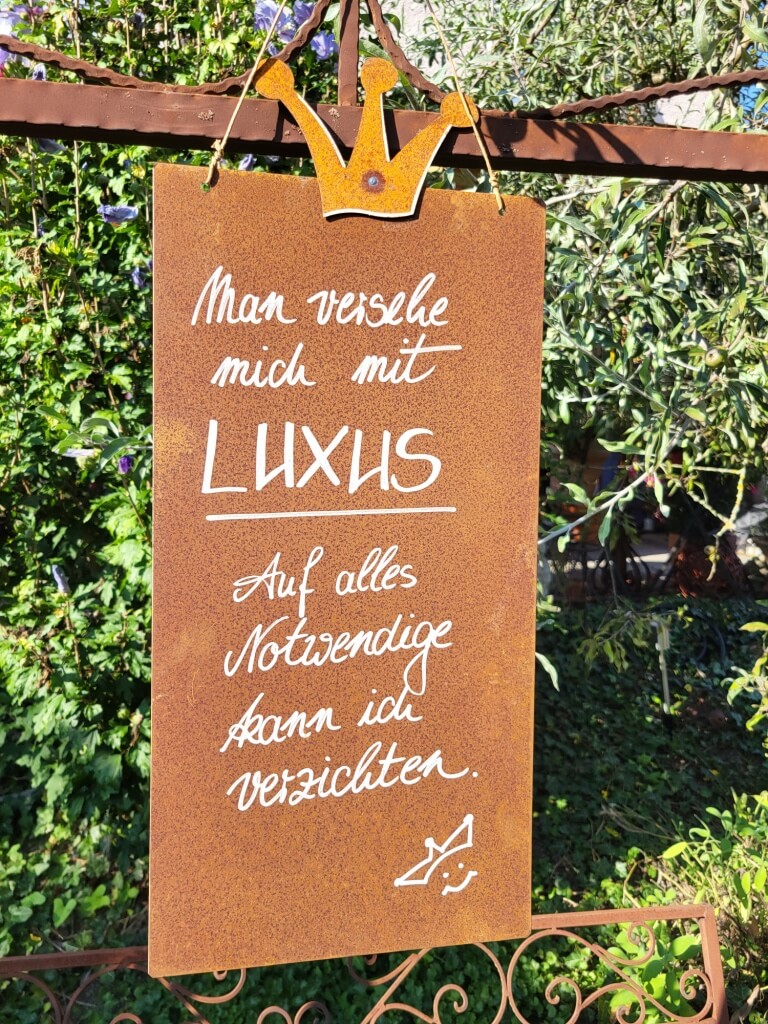 Man versehe
mich mit
LUXUS
Auf alles
Notwendige
kann ich
verzichten.